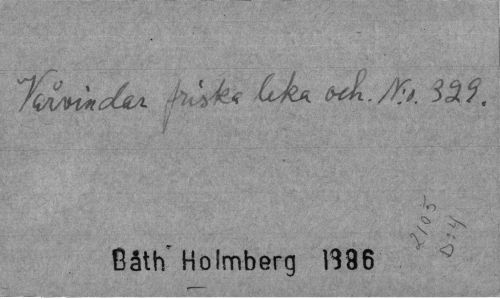 Vårvindar friska leka och. N:o. 329.
2105
D:4
Båth Holmberg 1986